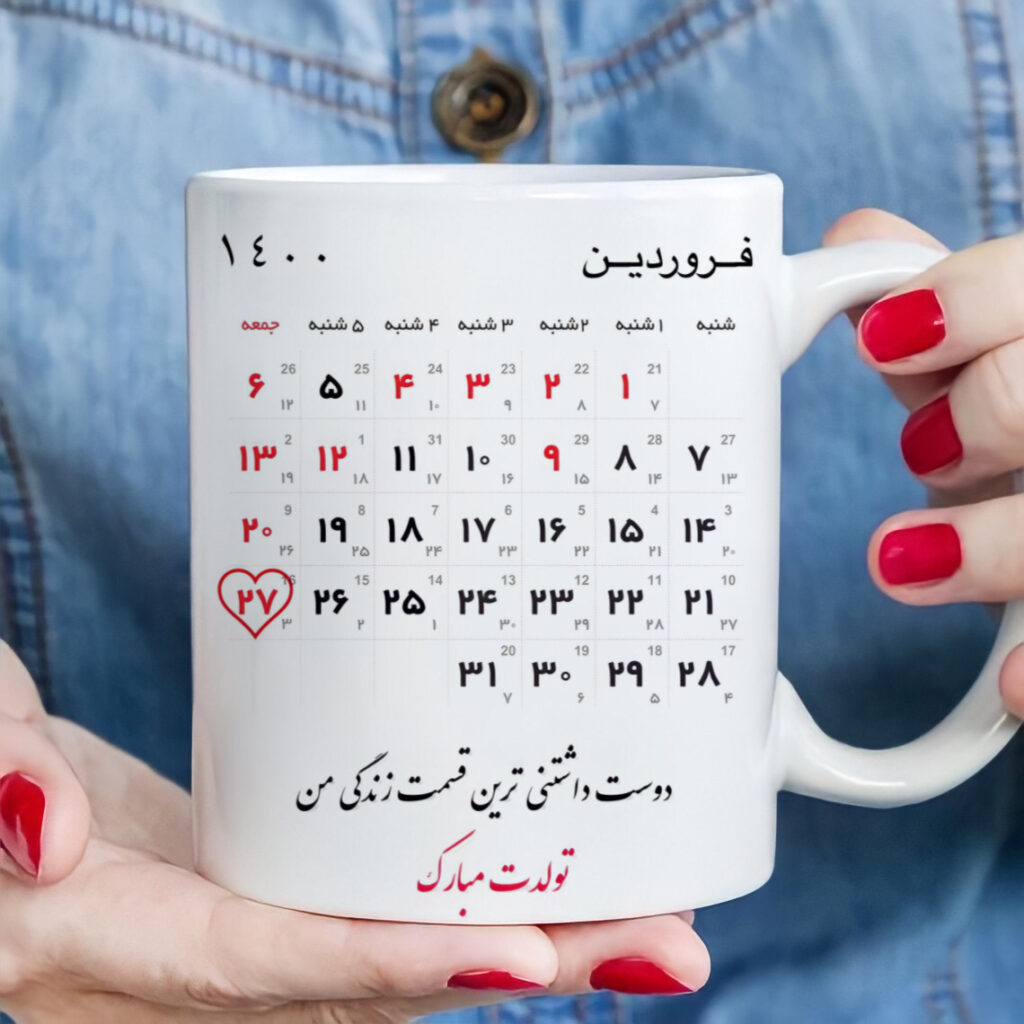 فروردین ۱۴۰۰
شنبه ۱ شنبه ۲ شنبه ۳ شنبه ۴ شنبه ۵ شنبه جمعه
21 22 23 24 25 26
۱ ۲ ۳ ۴ ۵ ۶
۷ ۸ ۹ ۱۰ ۱۱ ۱۲
27 28 29 30 31 1 2
۷ ۸ ۹ ۱۰ ۱۱ ۱۲ ۱۳
۱۳ ۱۴ ۱۵ ۱۶ ۱۷ ۱۸ ۱۹
3 4 5 6 7 8 9
۱۴ ۱۵ ۱۶ ۱۷ ۱۸ ۱۹ ۲۰
۲۰ ۲۱ ۲۲ ۲۳ ۲۴ ۲۵ ۲۶
10 11 12 13 14 15 16
۲۱ ۲۲ ۲۳ ۲۴ ۲۵ ۲۶ ۲۷
۲۷ ۲۸ ۲۹ ۳۰ ۱ ۲ ۳
17 18 19 20
۲۸ ۲۹ ۳۰ ۳۱
۴ ۵ ۶ ۷
دوست داشتنی ترین قسمت زندگی من
تولدت مبارک